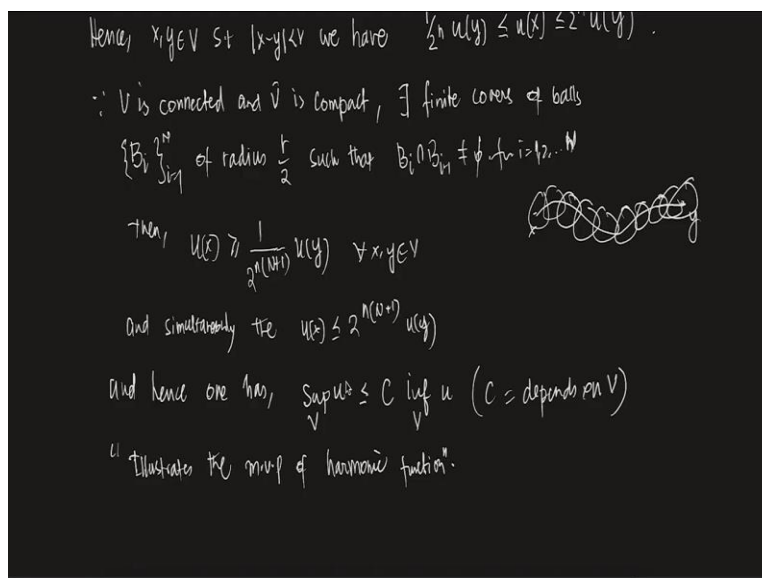 Hence, x,y∈V s.t |x-y|<r we have 1/2^n u(y) ≤ u(x) ≤ 2^n u(y).
∵ V is connected and V̄ is compact, ∃ finite covers of balls
{B_i}_{i=1}^N of radius r/2 such that B_i ∩ B_{i-1} ≠ ϕ for i=1,2,...N
x y
then, u(x) ≥ 1/2^{n(N+1)} u(y) ∀ x,y∈V
and simultaneously the u(x) ≤ 2^{n(N+1)} u(y)
and hence one has, sup_V u ≤ C inf_V u (C = depends on V)
"Illustrates the m.v.p of harmonic function".